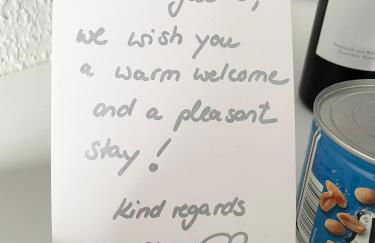 we wish you
a warm welcome
and a pleasant
stay!
kind regards